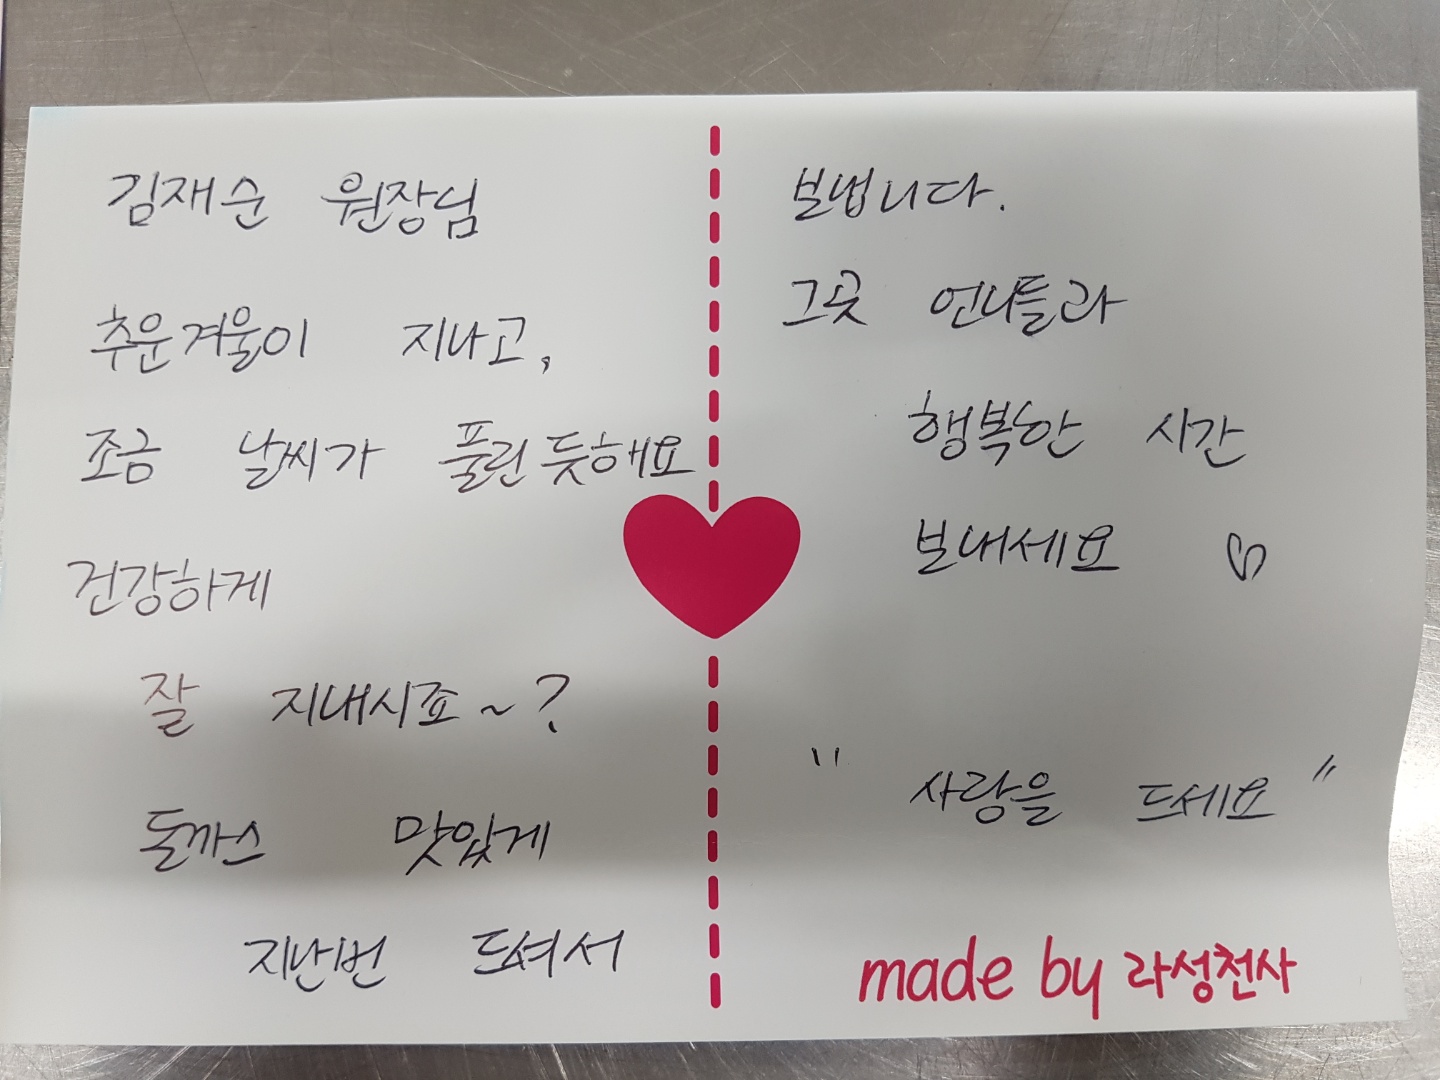 김재순 원장님
추운겨울이 지나고,
조금 날씨가 풀린듯해요
건강하게
잘 지내시죠~?
돌까스 맛있게
지난번 드셔서
보냅니다.
그곳 언니들과
행복한 시간
보내세요 ♡
" 사랑을 드세요 "
made by 라성천사